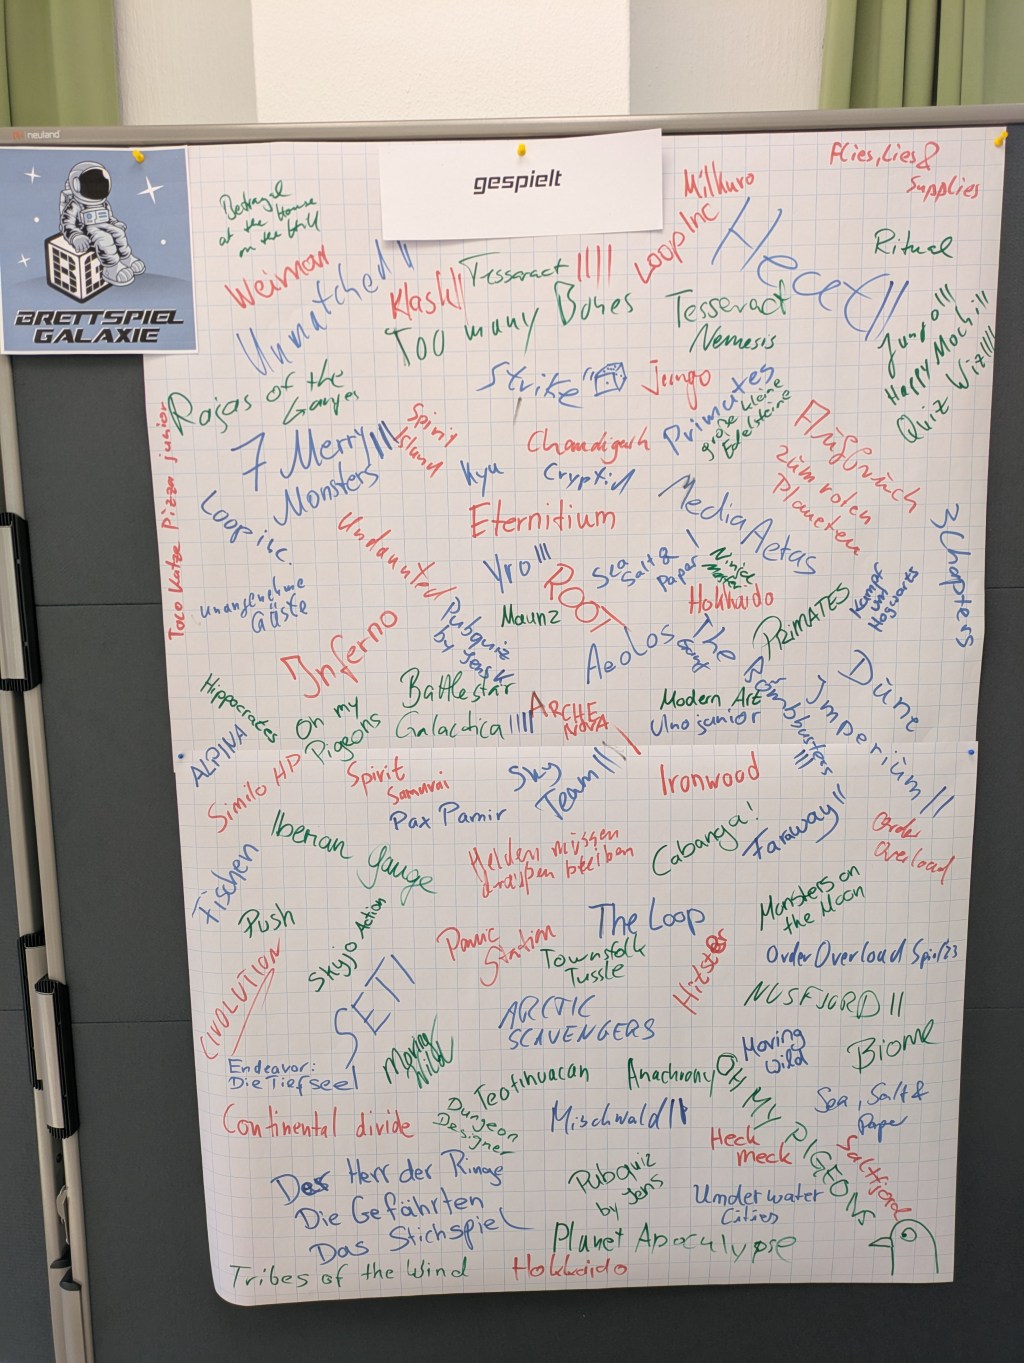 neuland
gespielt
BRETTSPIEL
GALAXIE
Flies, Lies &
Supplies
Milkuro
Betrayal
at the House
on the Hill
Weimar
Unmatched ||
Klash ||
Tesseract ||||
Loop Inc
Hecat ||
Ritual
Too many Bones
Tesseract
Nemesis
Jungo |||
Happy Mochi |||
Quiz Wiz ||||
Strike
Jungo
Primates
große kleine
Edelsteine
Rajas of the
Ganges
7 Merry |||
Monsters
Spirit
Island
Chandigarh
Kyu
Cryptid
Taco Katze Pizza junior
Loop inc.
Undaunted
Eternitium
Media Aetas
Aufbruch
zum roten
Planeten
3 Chapters
Yro |||
ROOT
Sea
Salt &
Paper |
Ninja
Hokkaido
unangenehme
Gäste
Inferno
Pubquiz
by Jens K
Maunz
Aeolos
The
Gang
PRIMATES
Kampf
um
Hogwarts
Hippocrates
ALPINA
Oh my
Pigeons
Battlestar
Galactica ||||
ARCHE
NOVA
Modern Art
Uno junior
Bombbusters
|||
Dune
Imperium ||
Similo HP
Spirit
Samurai
Sky
Team |||
Ironwood
Pax Pamir
Iberian Gauge
Helden müssen
draußen bleiben
Cabanga!
Faraway ||
Order
Overload
Fischen
Push
Skyjo Action
Panic
Station
The Loop
Townsfolk
Tussle
Hitster
Monsters on
the Moon
Order Overload
CIVOLUTION
SETI
ARCTIC
SCAVENGERS
NUSFJORD ||
Endeavor:
Die Tiefsee |
Moving
Wild
Moving
Wild
Biome
Teotihuacan
Anachrony
OH MY PIGEONS
Continental divide
Dungeon
Designer
Mischwald
Heck
meck
Sea, Salt &
Paper
Saltfjord
Der Herr der Ringe
Die Gefährten
Das Stichspiel
Pubquiz
by Jens
Underwater
Cities
Planet Apocalypse
Tribes of the Wind
Hokkaido